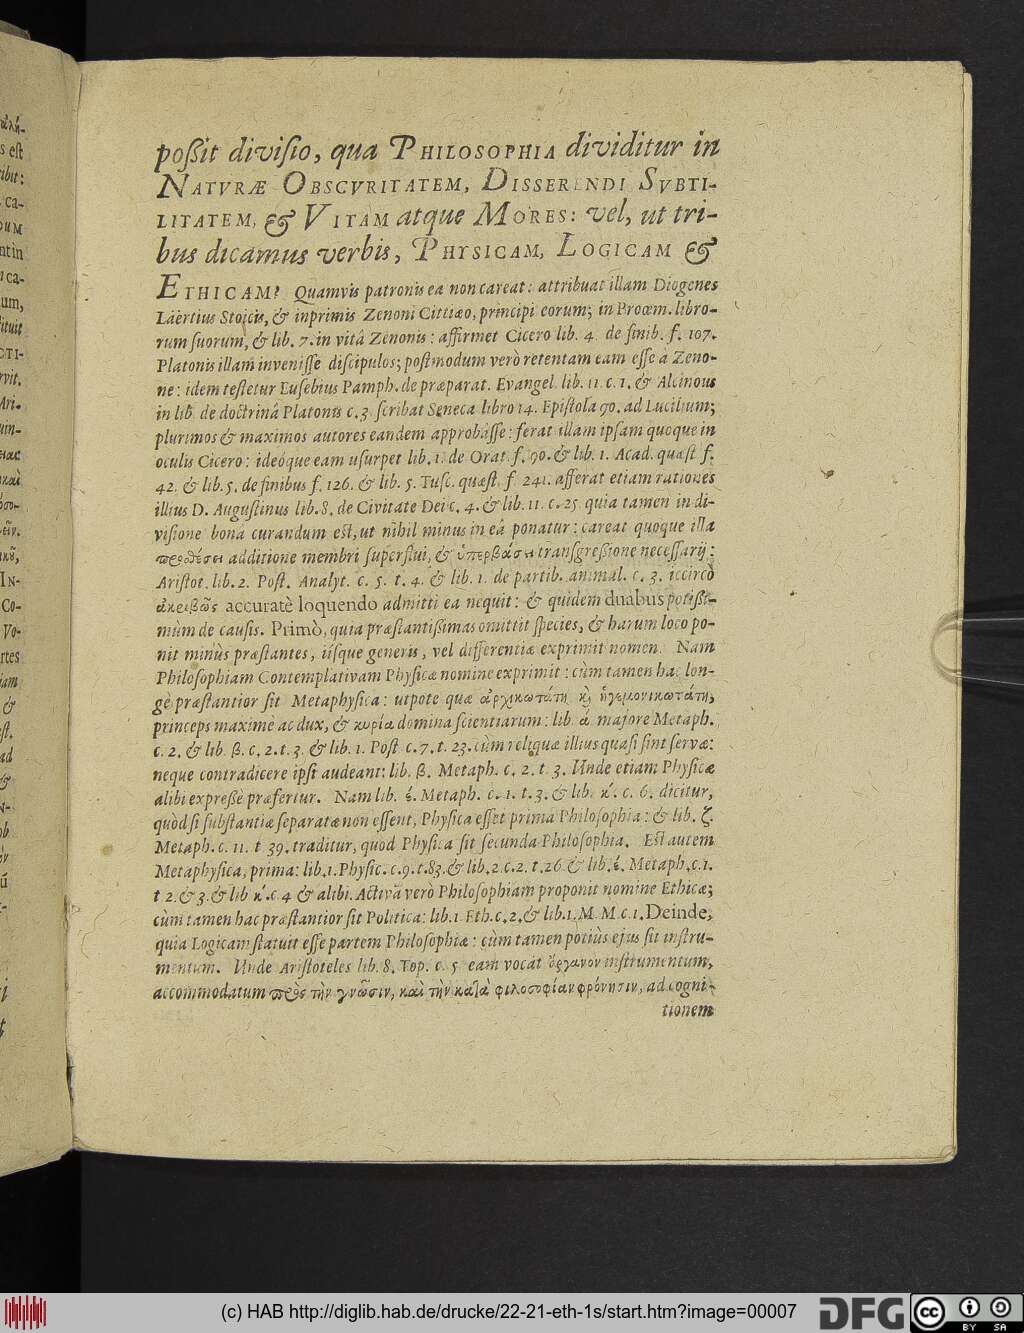 poßit diviſio, qua PHILOSOPHIA dividitur in
NATVRÆ OBSCVRITATEM, DISSERENDI SVBTI-
LITATEM, & VITAM atque MORES: vel, ut tri-
bus dicamus verbis, PHYSICAM, LOGICAM &
ETHICAM? Quamvis patronis ea non careat: attribuat illam Diogenes
Läertius Stoicis, & inprimis Zenoni Cittiæo, principi eorum; in Proœm. libro-
rum ſuorum, & lib. 7. in vitâ Zenonis: affirmet Cicero lib. 4. de finib. f. 107.
Platonis illam inveniſſe diſcipulos; poſtmodum verò retentam eam eſſe à Zeno-
ne: idem teſtetur Euſebius Pamph. de præparat. Evangel. lib. 11. c. 1. & Alcinous
in lib. de doctrinâ Platonis c. 3. ſcribat Seneca libro 14. Epiſtola 90. ad Lucilium;
plurimos & maximos autores eandem approbâſſe: ferat illam ipſam quoque in
oculis Cicero: ideóque eam uſurpet lib. 1. de Orat. f. 90. & lib. 1. Acad. quæſt. f.
42. & lib. 5. de finibus f. 126. & lib. 5. Tuſc. quæſt. f. 241. afferat etiam rationes
illius D. Auguſtinus lib. 8. de Civitate Dei c. 4. & lib. 11. c. 25. quia tamen in di-
viſione bona curandum eſt, ut nihil minus in eâ ponatur: careat quoque illa
προθέσει additione membri ſuperflui, & ὑπερβάσει transgreßione neceſſarij:
Ariſtot. lib. 2. Poſt. Analyt. c. 5. t. 4. & lib. 1. de partib. animal. c. 3. iccircò
ἀκριβῶς accuratè loquendo admitti ea nequit: & quidem duabus potißi-
mùm de cauſis. Primò, quia præſtantißimas omittit ſpecies, & harum loco po-
nit minùs præſtantes, iíſque generis, vel differentiæ exprimit nomen. Nam
Philoſophiam Contemplativam Phyſicæ nomine exprimit: cùm tamen hac lon-
gè præſtantior ſit Metaphyſica: utpote quæ ἀρχικωτάτη καὶ ἡγεμονικωτάτη,
princeps maximè ac dux, & κυρία domina ſcientiarum: lib. ά. majore Metaph.
c. 2. & lib. β. c. 2. t. 3. & lib. 1. Poſt. c. 7. t. 23. cùm reliquæ illius quaſi ſint ſervæ:
neque contradicere ipſi audeant: lib. β. Metaph. c. 2. t. 3. Unde etiam Phyſicæ
alibi expreßè præfertur. Nam lib. έ. Metaph. c. 1. t. 3. & lib. κ΄. c. 6. dicitur,
quòd ſi ſubſtantiæ ſeparatæ non eſſent, Phyſica eſſet prima Philoſophia: & lib. ζ.
Metaph. c. 11. t. 39. traditur, quod Phyſica ſit ſecunda Philoſophia. Eſt autem
Metaphyſica, prima: lib. 1. Phyſic. c. 9. t. 83. & lib. 2. c. 2. t. 26. & lib. έ. Metaph. c. 1.
t. 2. & 3. & lib κ΄. c. 4. & alibi. Activã verò Philoſophiam proponit nomine Ethicæ;
cùm tamen hac præſtantior ſit Politica: lib. 1. Eth. c. 2. & lib. 1. M. M. c. 1. Deinde,
quia Logicam ſtatuit eſſe partem Philoſophiæ: cùm tamen potiùs ejus ſit inſtru-
mentum. Unde Ariſtoteles lib. 8. Top. c. 5. eam vocat ὄργανον inſtrumentum,
accommodatum πρὸς τὴν γνῶσιν, καὶ τὴν κατὰ φιλοσοφίαν φρόνησιν, ad cogni-
tionem
(c) HAB http://diglib.hab.de/drucke/22-21-eth-1s/start.htm?image=00007
DFG
cc
BY SA